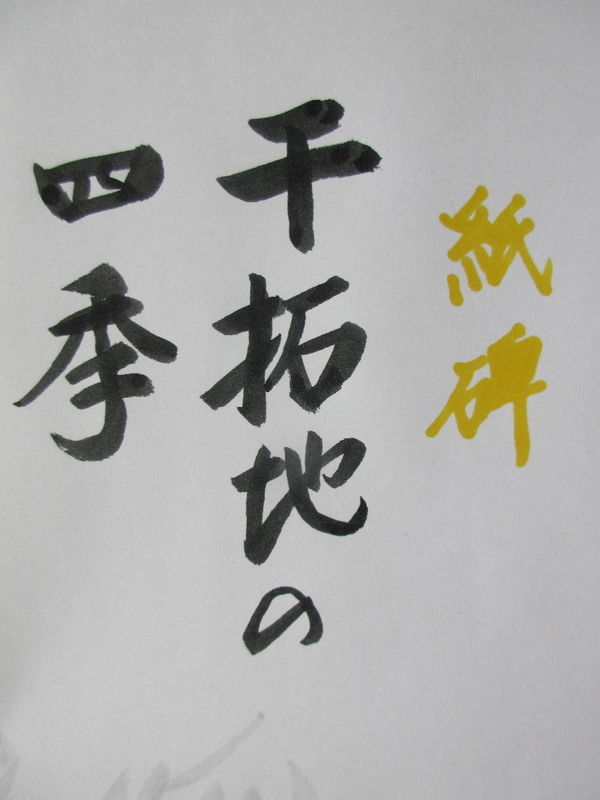 紙碑
干拓地の
四季